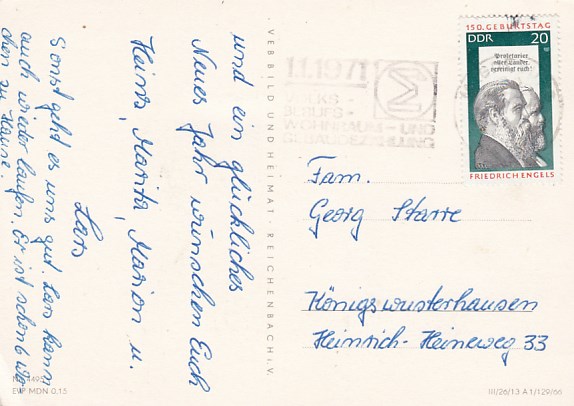 und ein glückliches
Neues Jahr wünschen Euch
Heinz, Marita, Marion u.
Lars
Sonst geht es uns gut. Lars kann
auch wieder laufen. Er ist schon 6 Wo
chen zu Hause.
VEB BILD UND HEIMAT · REICHENBACH i. V.
EVP MDN 0,15
150. GEBURTSTAG
DDR 20
Proletarier
aller Länder
vereinigt euch!
FRIEDRICH ENGELS
1.1.1971
VOLKS-
BERUFS-
WOHNRAUM- UND
GEBÄUDEZÄHLUNG
Fam.
Georg Starre
Königswusterhausen
Heinrich-Heineweg 33
III/26/13 A 1/129/66